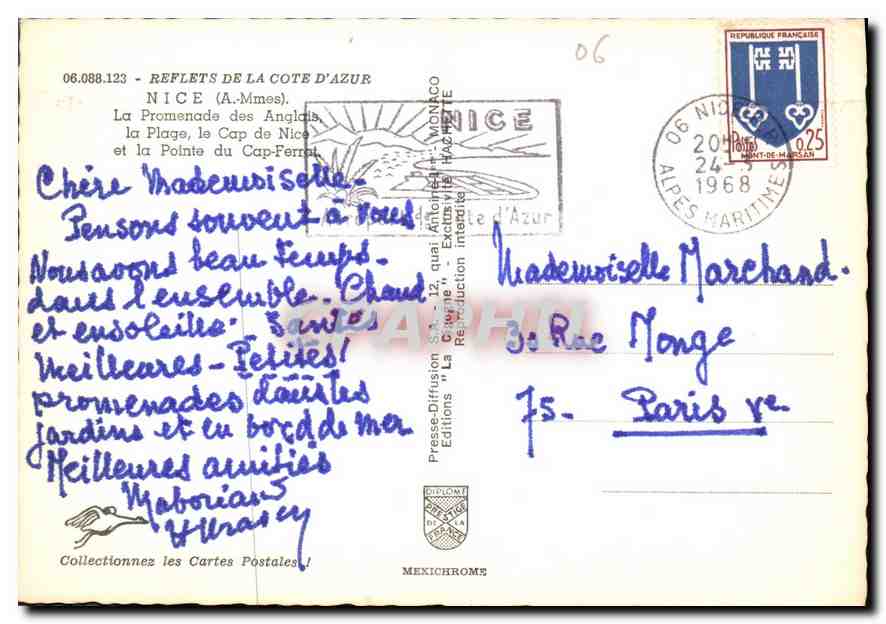 06
06.088.123 - REFLETS DE LA COTE D'AZUR
NICE (A.-Mmes).
La Promenade des Anglais,
la Plage, le Cap de Nice
et la Pointe du Cap-Ferrat.
NICE
d'Azur
REPUBLIQUE FRANÇAISE
Postes 0,25
MONT-DE-MARSAN
06 NICE
24-5
1968
ALPES MARITIMES
Chère Mademoiselle-
Pensons souvent à vous
Nous avons beau temps-
dans l'ensemble. Chaud
et ensoleillé. Santés
Meilleures - Petites
promenades dans les
jardins et en bord de mer
Meilleures amitiés
Presse-Diffusion S.A. - 12, quai Antoine-1er - MONACO
Editions "La Cigogne" - Exclusivité HACHETTE
Reproduction interdite
Mademoiselle Marchand.
30 Rue Monge
75- Paris Ve
CPAPHIL
DIPLOME
PRESTIGE
DE LA
FRANCE
Collectionnez les Cartes Postales !
MEXICHROME